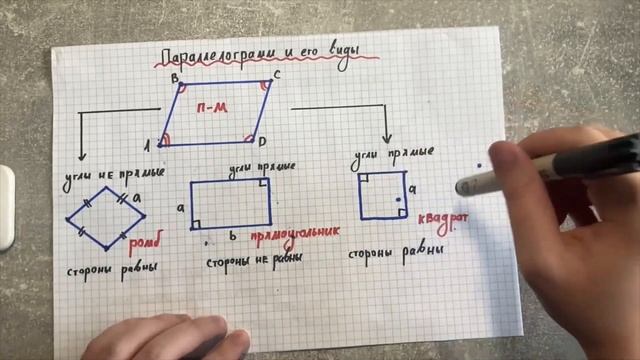 Параллелограмм и его виды
B
C
п-м
A
D
углы не прямые
a
ромб
стороны равны
углы прямые
a
b
прямоугольник
стороны не равны
углы прямые
a
квадрат
стороны равны